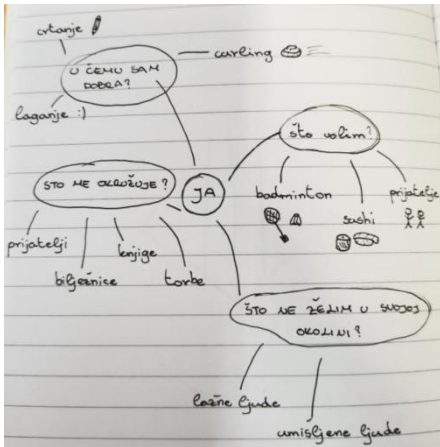 crtanje
curling
U ČEMU SAM
DOBRA?
laganje :)
što volim?
ŠTO ME OKRUŽUJE?
JA
badminton
sushi
prijatelje
prijatelji
bilježnice
knjige
torbe
ŠTO NE ŽELIM U SVOJOJ
OKOLINI?
lažne ljude
umišljene ljude